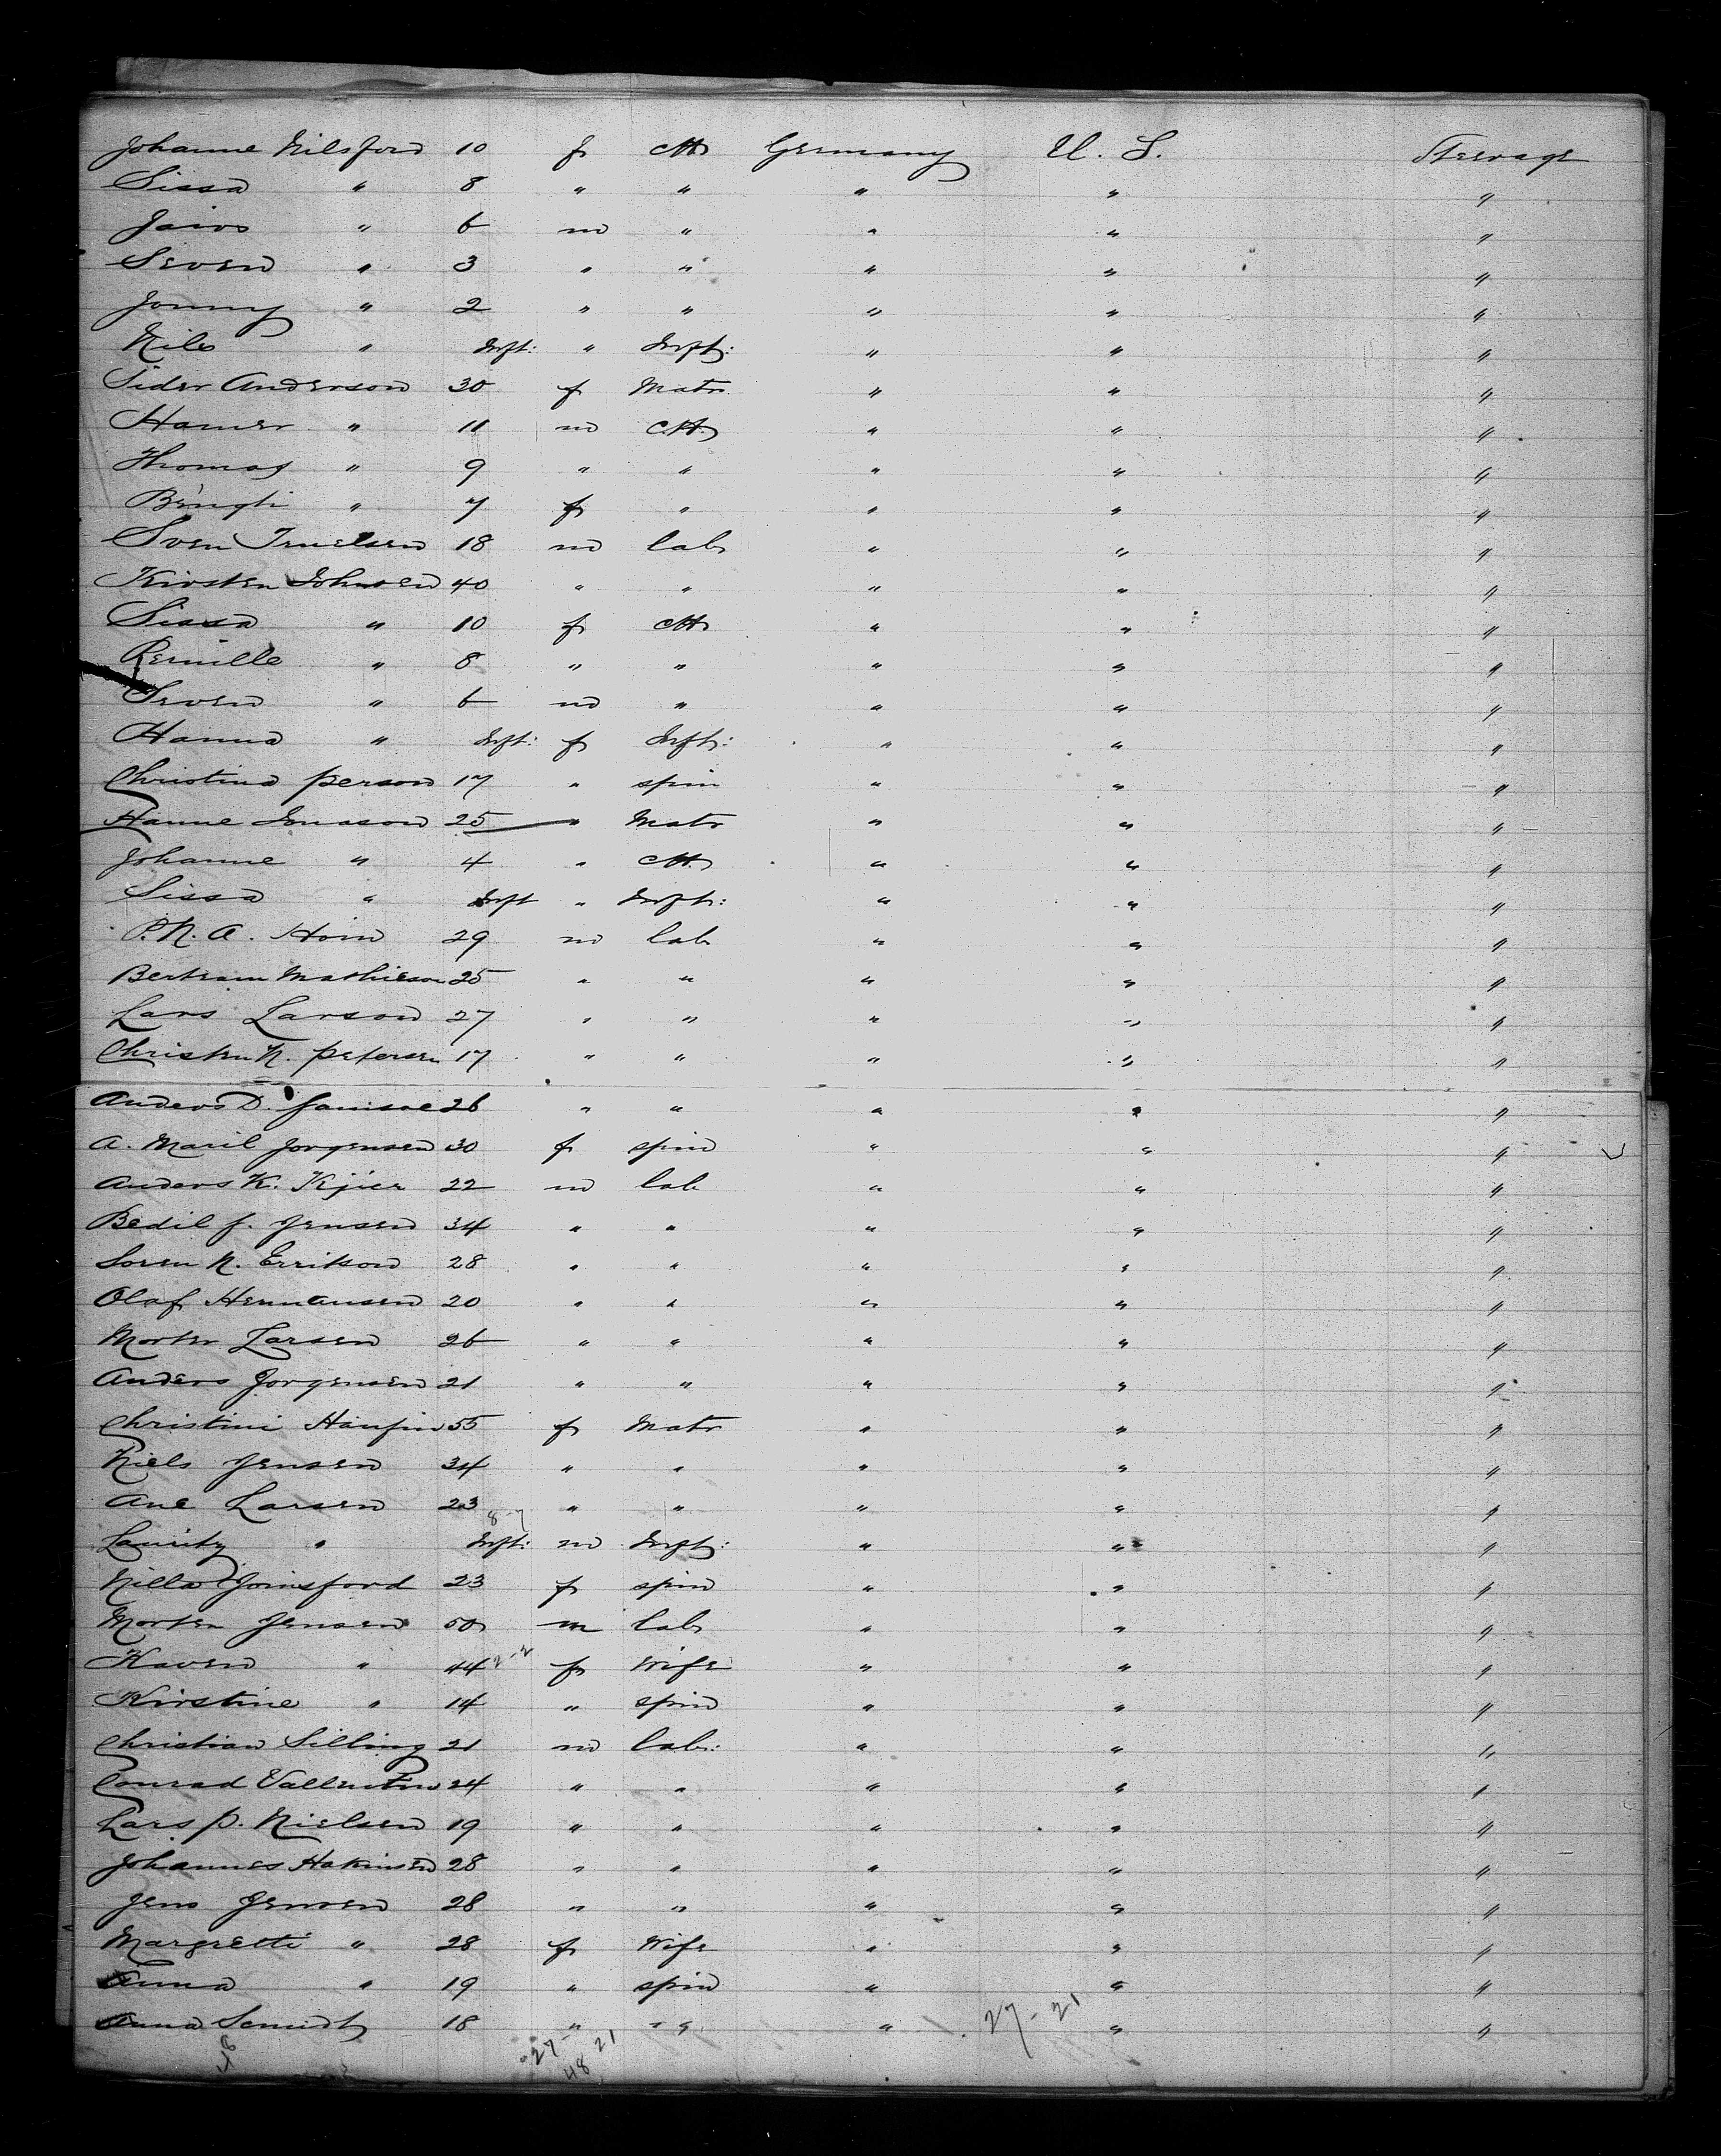 Johanne Nilsford 10 f ch Germany U. S. Steerage
Sissa " 8 " " " " "
" 6 m " " " "
Seven " 3 " " " " "
Jonny " 2 " " " " "
Nils " Inft: " Inft: " " "
Sider Anderson 30 f Matr. " " "
Hamer " 11 m ch " " "
Thomas " 9 " " " " "
Bengti " 7 f " " " "
Sven 18 m lab " " "
Kirsten Johnsen 40 " " " " "
Sissa " 10 f ch " " "
Pernille " 8 " " " " "
Seven " 6 m " " " "
Hanna " Inft: f Inft: " " "
Christina person 17 " spin " " "
Hanne Jonason 25 " Matr " " "
Johanne " 4 " ch " " "
Sissa " Inft " Inft: " " "
P. N. A. Hoin 29 m lab " " "
Bertram Mathieson 25 " " " " "
Lars Larson 27 " " " " "
Christen N. petersen 17 " " " " "
Anders D. 26 " " " " "
A. Maril Jorgensen 30 f spin " " "
Anders K. Kjier 22 m lab " " "
Bedil f. Jensen 34 " " " " "
Soren N. Errikson 28 " " " " "
Olaf Hermansen 20 " " " " "
Morten Larsen 26 " " " " "
Anders Jorgensen 21 " " " " "
Christini 55 f Matr " " "
Niels Jensen 34 " " " " "
Ane Larsen 23 " " " " "
8-7
Lauritz " Inft: m Inft: " " "
Nilla Joinsford 23 f spin " " "
Morten Jensen 50 m lab " " "
Karen " 44 2-2 f Wife " " "
Kirstine " 14 " spin " " "
Christian Silling 21 m lab: " " "
Conrad Vallentin 24 " " " " "
Lars p. Nielsen 19 " " " " "
Johannes Hakinsen 28 " " " " "
Jens Jensen 28 " " " " "
Margretti " 28 f Wife " " "
Anna " 19 " spin " " "
Anna Semidt 18 " " " " "
27-21
27-21
48
48